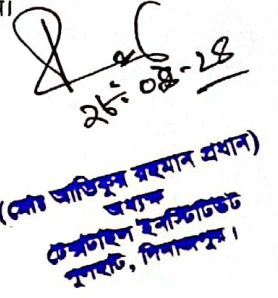 ২৮.০৪-২৪
(মোঃ আতিকুর রহমান প্রধান)
অধ্যক্ষ
টেক্সটাইল ইনস্টিটিউট
পুলহাট, দিনাজপুর।